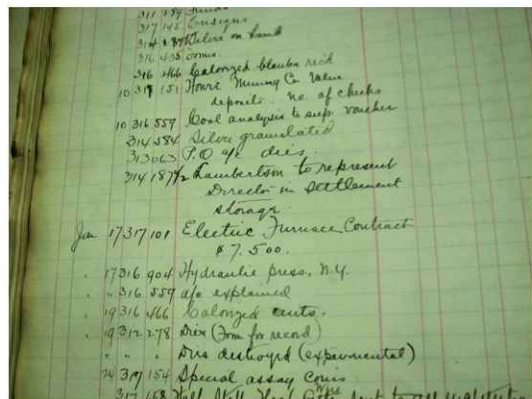 311 289
317 145 Ensigns
314 287 Silver on hand
316 435 Coins.
316 466 Calorized blanks rec'd
10 317 151 Howit Mining Co value
deposits. no. of checks
10 316 559 Coal analysis to sup. voucher
314 584 Silver granulated
313 063 P.O a/c dies.
314 187 1/2 Lambertson to represent
Director in settlement
storage.
Jan 17 317 101 Electric Furnace Contract
$7,500.
" 17 316 904 Hydraulic press, N.Y.
" " 316 559 a/c explained
" 19 316 466 Calorized cents.
" 19 312 278 Dies (Form for record)
" " " Dies destroyed (experimental)
24 317 154 Special assay Coins
317 158 Half Doll. sent to all